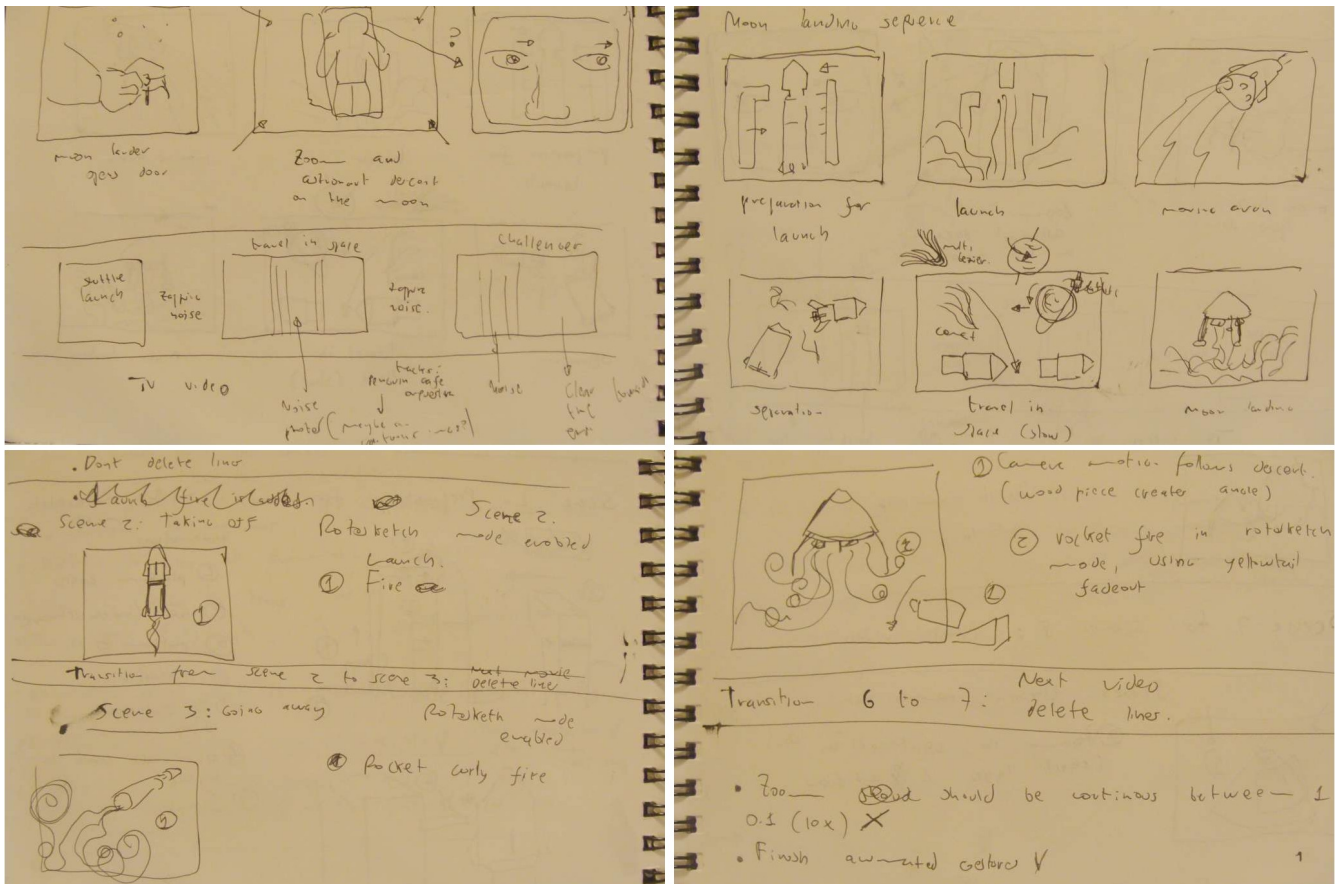 moon lander
open door
Zoom and
astronaut descent
on the moon
?
shuttle
launch
zapping
noise
travel in space
zapping
noise.
Challenger
TV video
Noise
photos (maybe
noise
Moon landing sequence
preparation for
launch
launch
moving away
separation
comet
travel in
space (slow)
moon landing
. Dont delete lines
Scene 2: Taking off
Rotosketch mode enabled
Scene 2.
Launch.
① Fire
1
Transition from scene 2 to scene 3: Next movie
Delete lines
Scene 3: Going away
Rotosketch mode
enabled
① Rocket curly fire
1
① Camera motion follows descent.
(wood piece creates angle)
② rocket fire in rotosketch
mode, using yellowtail
fadeout
2
1
Transition 6 to 7: Next video
delete lines.
• Zoom should be continous between 1
0.1 (10x) X
• Finish animated gestures V
1